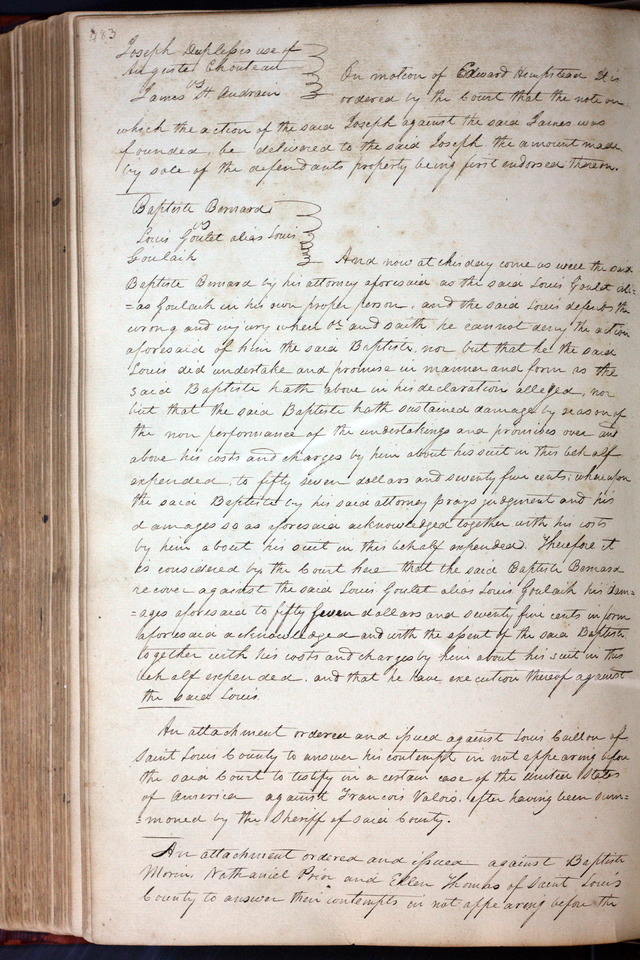 483
Joseph Duplessis use of
Auguste Chouteau
vs
James St Andrew
On motion of Edward Hempstead It is
ordered by the Court that the note on
which the action of the said Joseph against the said James was
founded, be delivered to the said Joseph, the amount made
by sale of the defendants property being first endorsed thereon.
Baptiste Bernard
vs
Louis Goulet alias Louis
Goulaih
And now at this day come as well the said
Baptiste Bernard by his attorney aforesaid as the said Louis Goulet ali-
=as Goulaih in his own proper person, and the said Louis defends the
wrong and injury when &c and saith he cannot deny the action
aforesaid of him the said Baptiste, nor but that he the said
Louis did undertake and promise in manner and form as the
said Baptiste hath above in his declaration alleged, nor
but that the said Baptiste hath sustained damage by reason of
the non performance of the undertakings and promises over and
above his costs and charges by him about his suit in this behalf
expended, to fifty seven dollars and seventy five cents; whereupon
the said Baptiste by his said attorney prays judgment and his
damages so as aforesaid acknowledged together with his costs
by him about his suit in this behalf expended. Therefore it
is considered by the Court here that the said Baptiste Bernard
recover against the said Louis Goulet alias Louis Goulaih his dam-
=ages aforesaid to fifty seven dollars and seventy five cents in form
aforesaid acknowledged and with the assent of the said Baptiste
together with his costs and charges by him about his suit in this
behalf expended, and that he have execution thereof against
the said Louis
An attachment ordered and issued against Louis Caillou of
Saint Louis County to answer his contempt in not appearing before
the said Court to testify in a certain case of the United States
of America against Francois Valois, after having been sum-
=moned by the Sheriff of said County.
An attachment ordered and issued against Baptiste
Morin, Nathaniel Prior and Ellen Thomas of Saint Louis
County to answer their contempts in not appearing before the